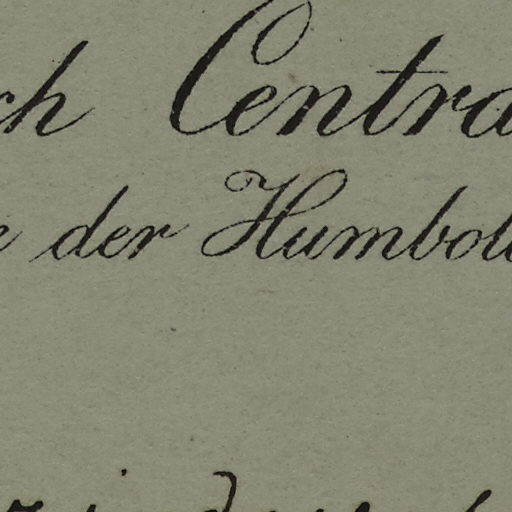 ch Centra
e der Humbol